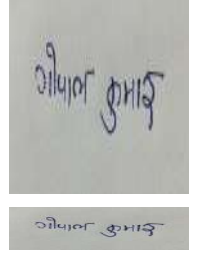 गोपाल कुमार
गोपाल कुमार